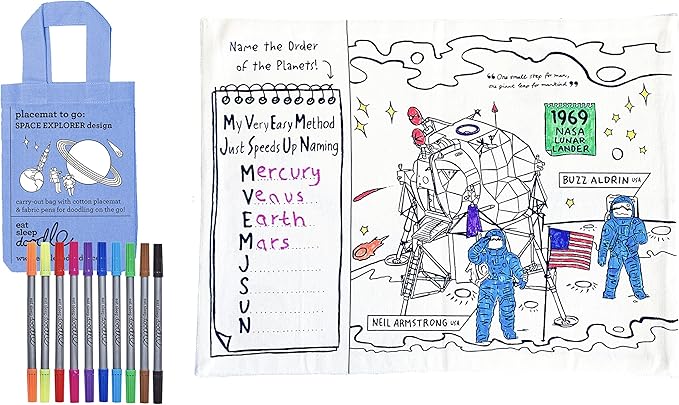 placemat to go:
SPACE EXPLORER design
carry-out bag with cotton placemat
& fabric pens for doodling on the go!
eat
sleep
doodle
Name the Order
of the Planets!
My Very Easy Method
Just Speeds Up Naming
Mercury
Venus
Earth
Mars
J
S
U
N
“One small step for man,
one giant leap for mankind”
1969
NASA
LUNAR
LANDER
BUZZ ALDRIN USA
NEIL ARMSTRONG USA